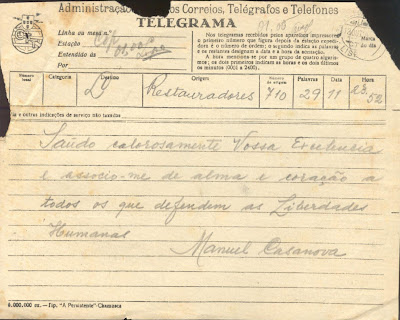 Administração dos Correios, Telégrafos e Telefones
TELEGRAMA
Linha ou meio
Estação
Entendido às
Nos telegramas recebidos pelos aparelhos impressores
o primeiro número que figura depois da estação expedidora
é o número de ordem; o segundo indica as palavras
e os restantes designam a data e a hora da aceitação.
A hora menciona-se por um grupo de quatro algarismos;
os dois primeiros indicam as horas e os dois últimos
os minutos (0001 a 2400).
Categoria Destino Origem Número Palavras Data Hora
Lx Restauradores 710 29 11 23 52
ia e outras indicações de serviço não taxadas
Saúdo calorosamente Vossa Excelencia
e associo-me de alma e coração a
todos os que defendem as Liberdades
Humanas
Manuel Casanova
Tip. "A Persistente"-Chamusca